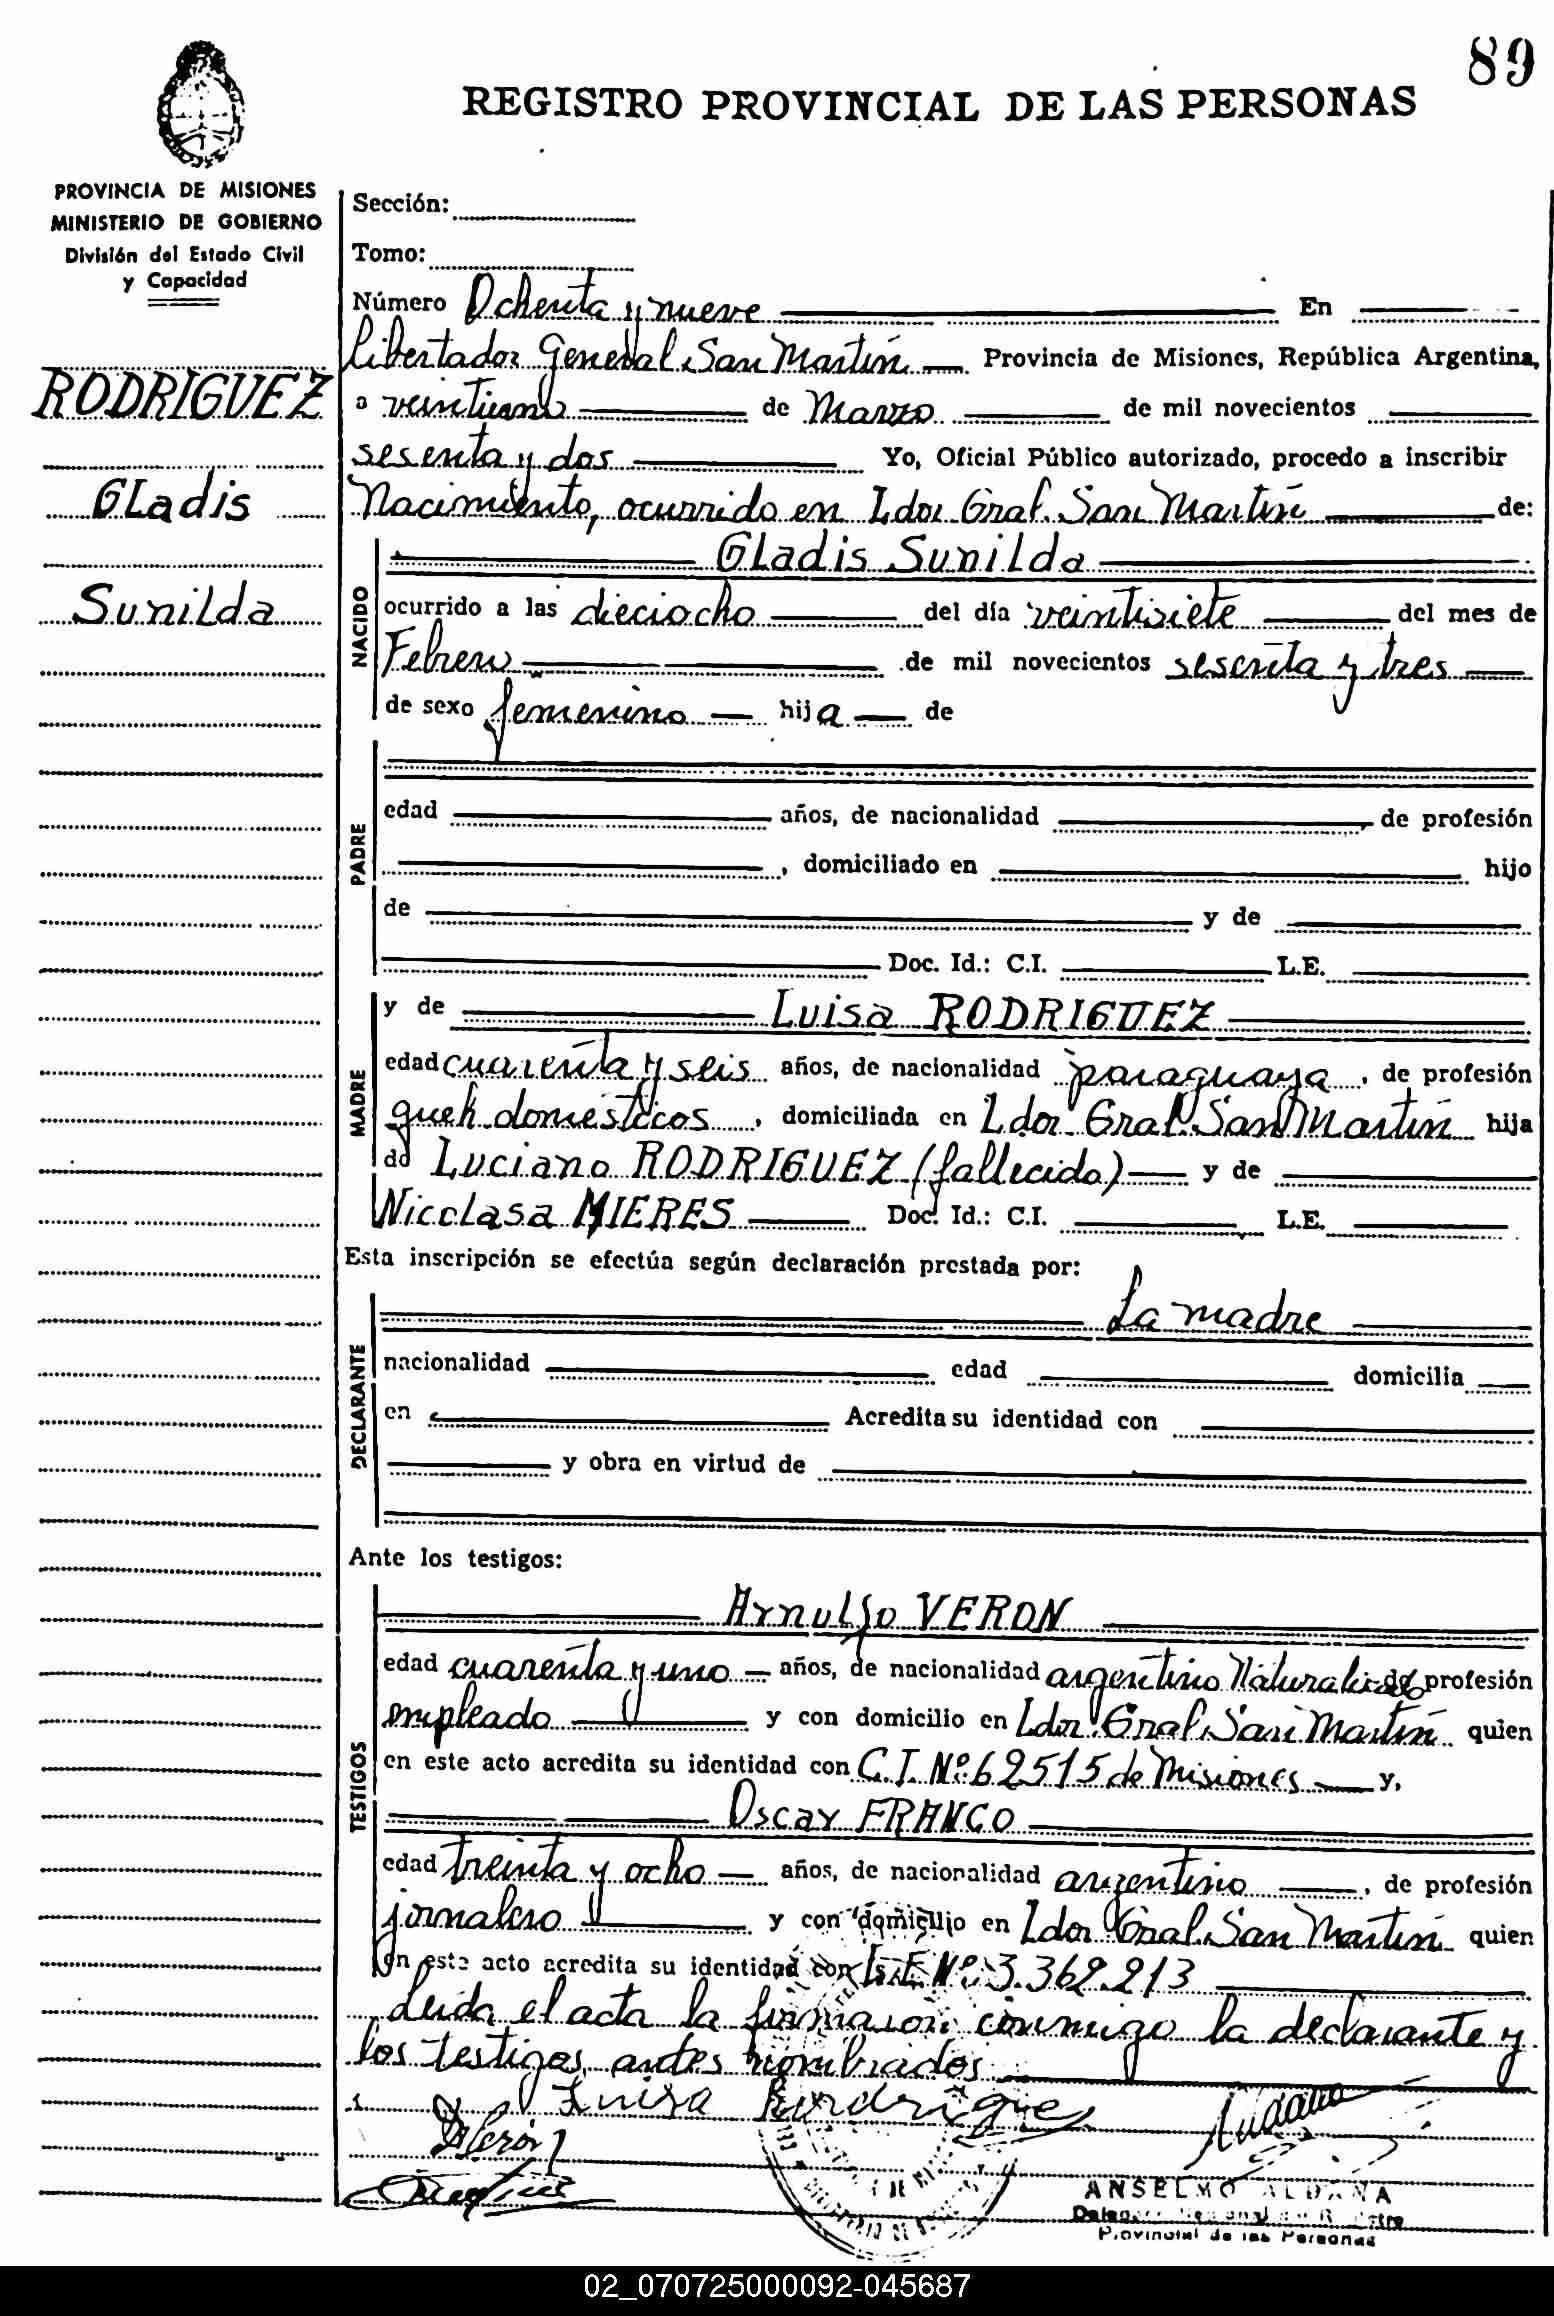 89
REGISTRO PROVINCIAL DE LAS PERSONAS
PROVINCIA DE MISIONES
MINISTERIO DE GOBIERNO
División del Estado Civil
y Capacidad
RODRIGUEZ
GLadis
Sunilda
Sección:
Tomo:
Número Ochenta y nueve En
Libertador General San Martín Provincia de Misiones, República Argentina,
a veintiuno de Marzo de mil novecientos
sesenta y dos Yo, Oficial Público autorizado, procedo a inscribir
Nacimiento, ocurrido en Ldor Gral. San Martín de:
NACIDO
GLadis Sunilda
ocurrido a las dieciocho del día veintisiete del mes de
Febrero de mil novecientos sesenta y tres
de sexo femenino hija de
PADRE
edad años, de nacionalidad , de profesión
, domiciliado en hijo
de y de
Doc. Id.: C.I. L.E.
MADRE
y de Luisa RODRIGUEZ
edad cuarenta y seis años, de nacionalidad paraguaya, de profesión
queh. domésticos, domiciliada en Ldor Gral. San Martín hija
de Luciano RODRIGUEZ (fallecido) y de
Nicolasa MIERES Doc. Id.: C.I. L.E.
Esta inscripción se efectúa según declaración prestada por:
DECLARANTE
La madre
nacionalidad edad domicilia
en Acredita su identidad con
y obra en virtud de
Ante los testigos:
TESTIGOS
Arnulfo VERON
edad cuarenta y uno años, de nacionalidad argentino Naturalizado de profesión
empleado y con domicilio en Ldor. Gral. San Martín quien
en este acto acredita su identidad con C.I. Nº: 62515 de Misiones y,
Oscar FRANCO
edad treinta y ocho años, de nacionalidad argentino, de profesión
jornalero y con domicilio en Ldor Gral. San Martín quien
en este acto acredita su identidad con L.E. Nº: 3.362.213
Leida el acta la firmaron conmigo la declarante y
los testigos antes nombrados
Luisa Rodrigue
ANSELMO ALDANA
Provincial de las Personas
02_070725000092-045687